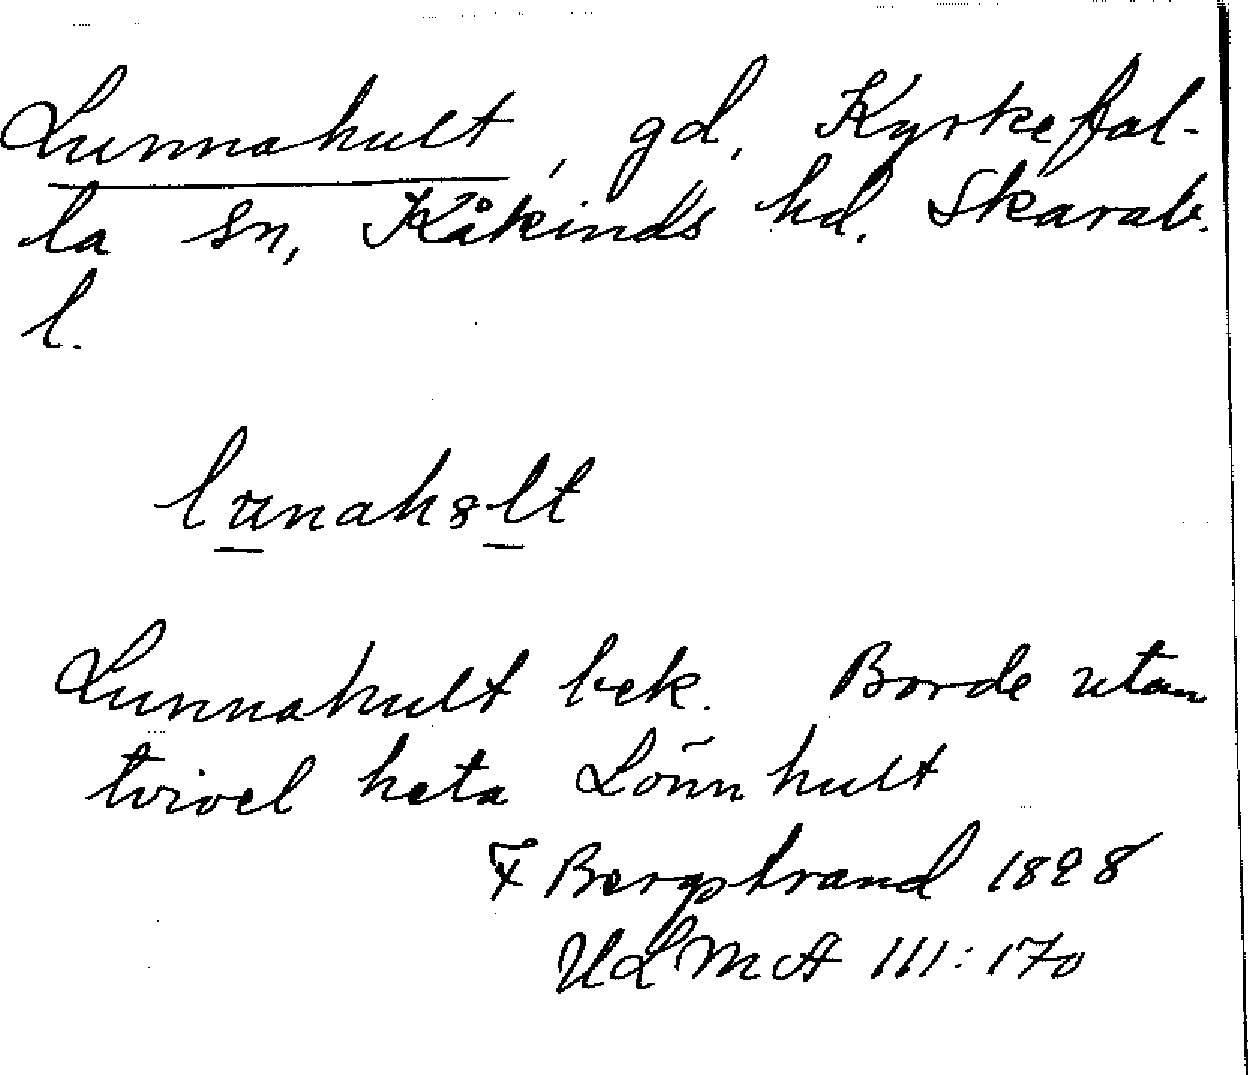 Lunnahult, gd, Kyrkefal-
la sn, Kåkinds hd. Skarab.
l.
Lunnahult bek. Borde utan
tvivel heta Lönnhult
F Bergstrand 1898
ULMA 111:170